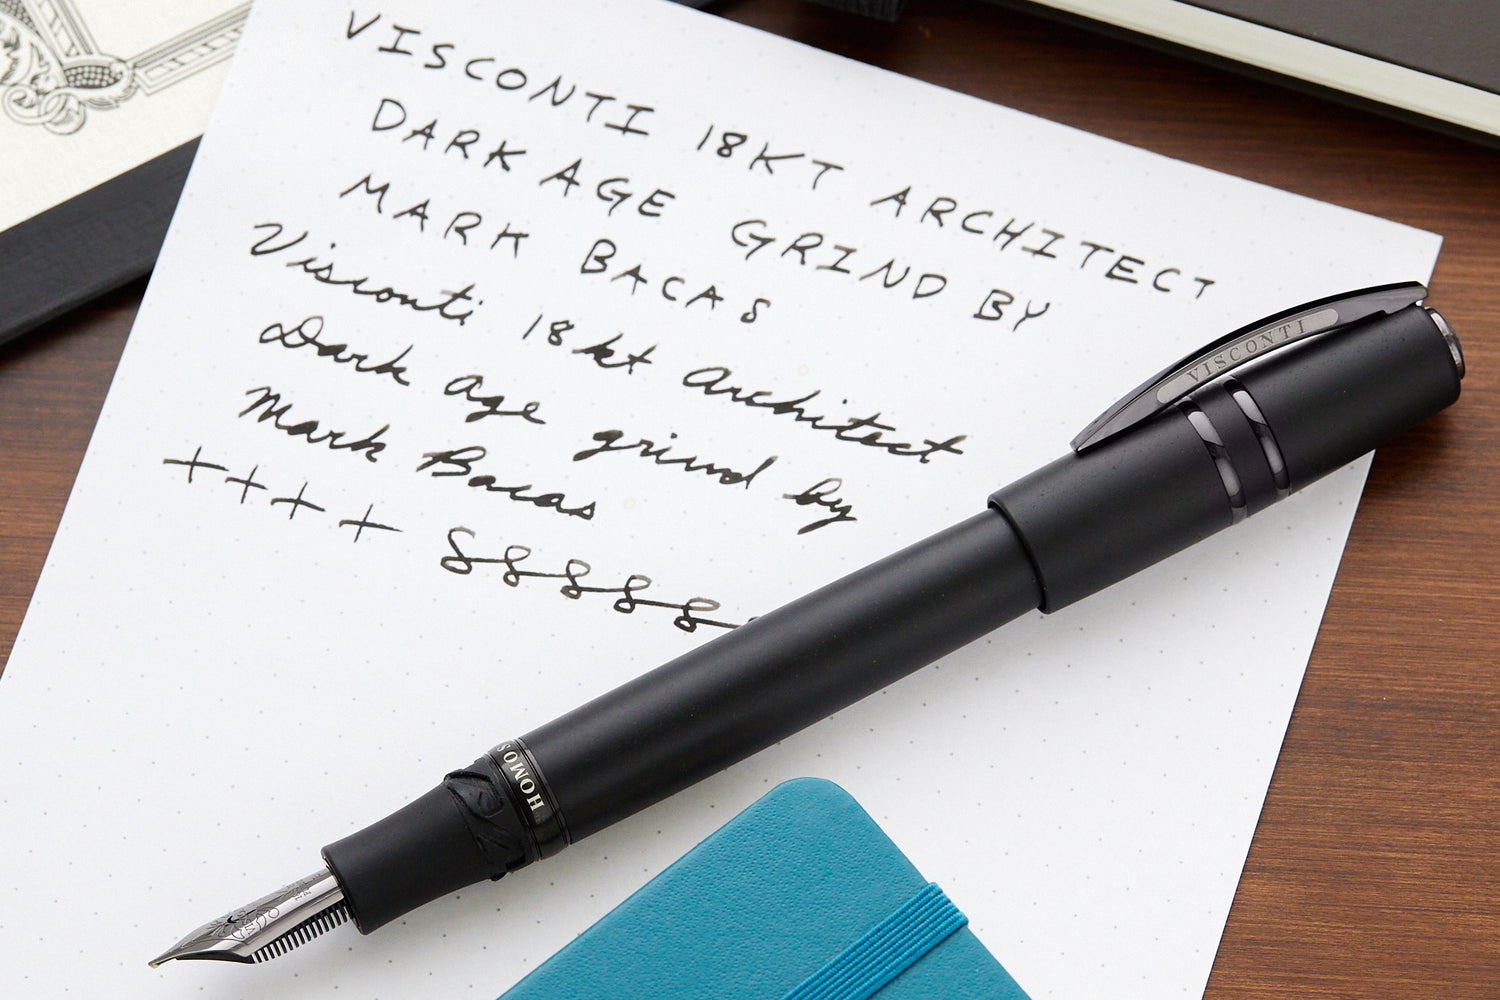 VISCONTI 18KT ARCHITECT
DARK AGE GRIND BY
MARK BACAS
Visconti 18kt Architect
Dark Age grind by
Mark Bacas
++++ 88888
VISCONTI
HOMO S